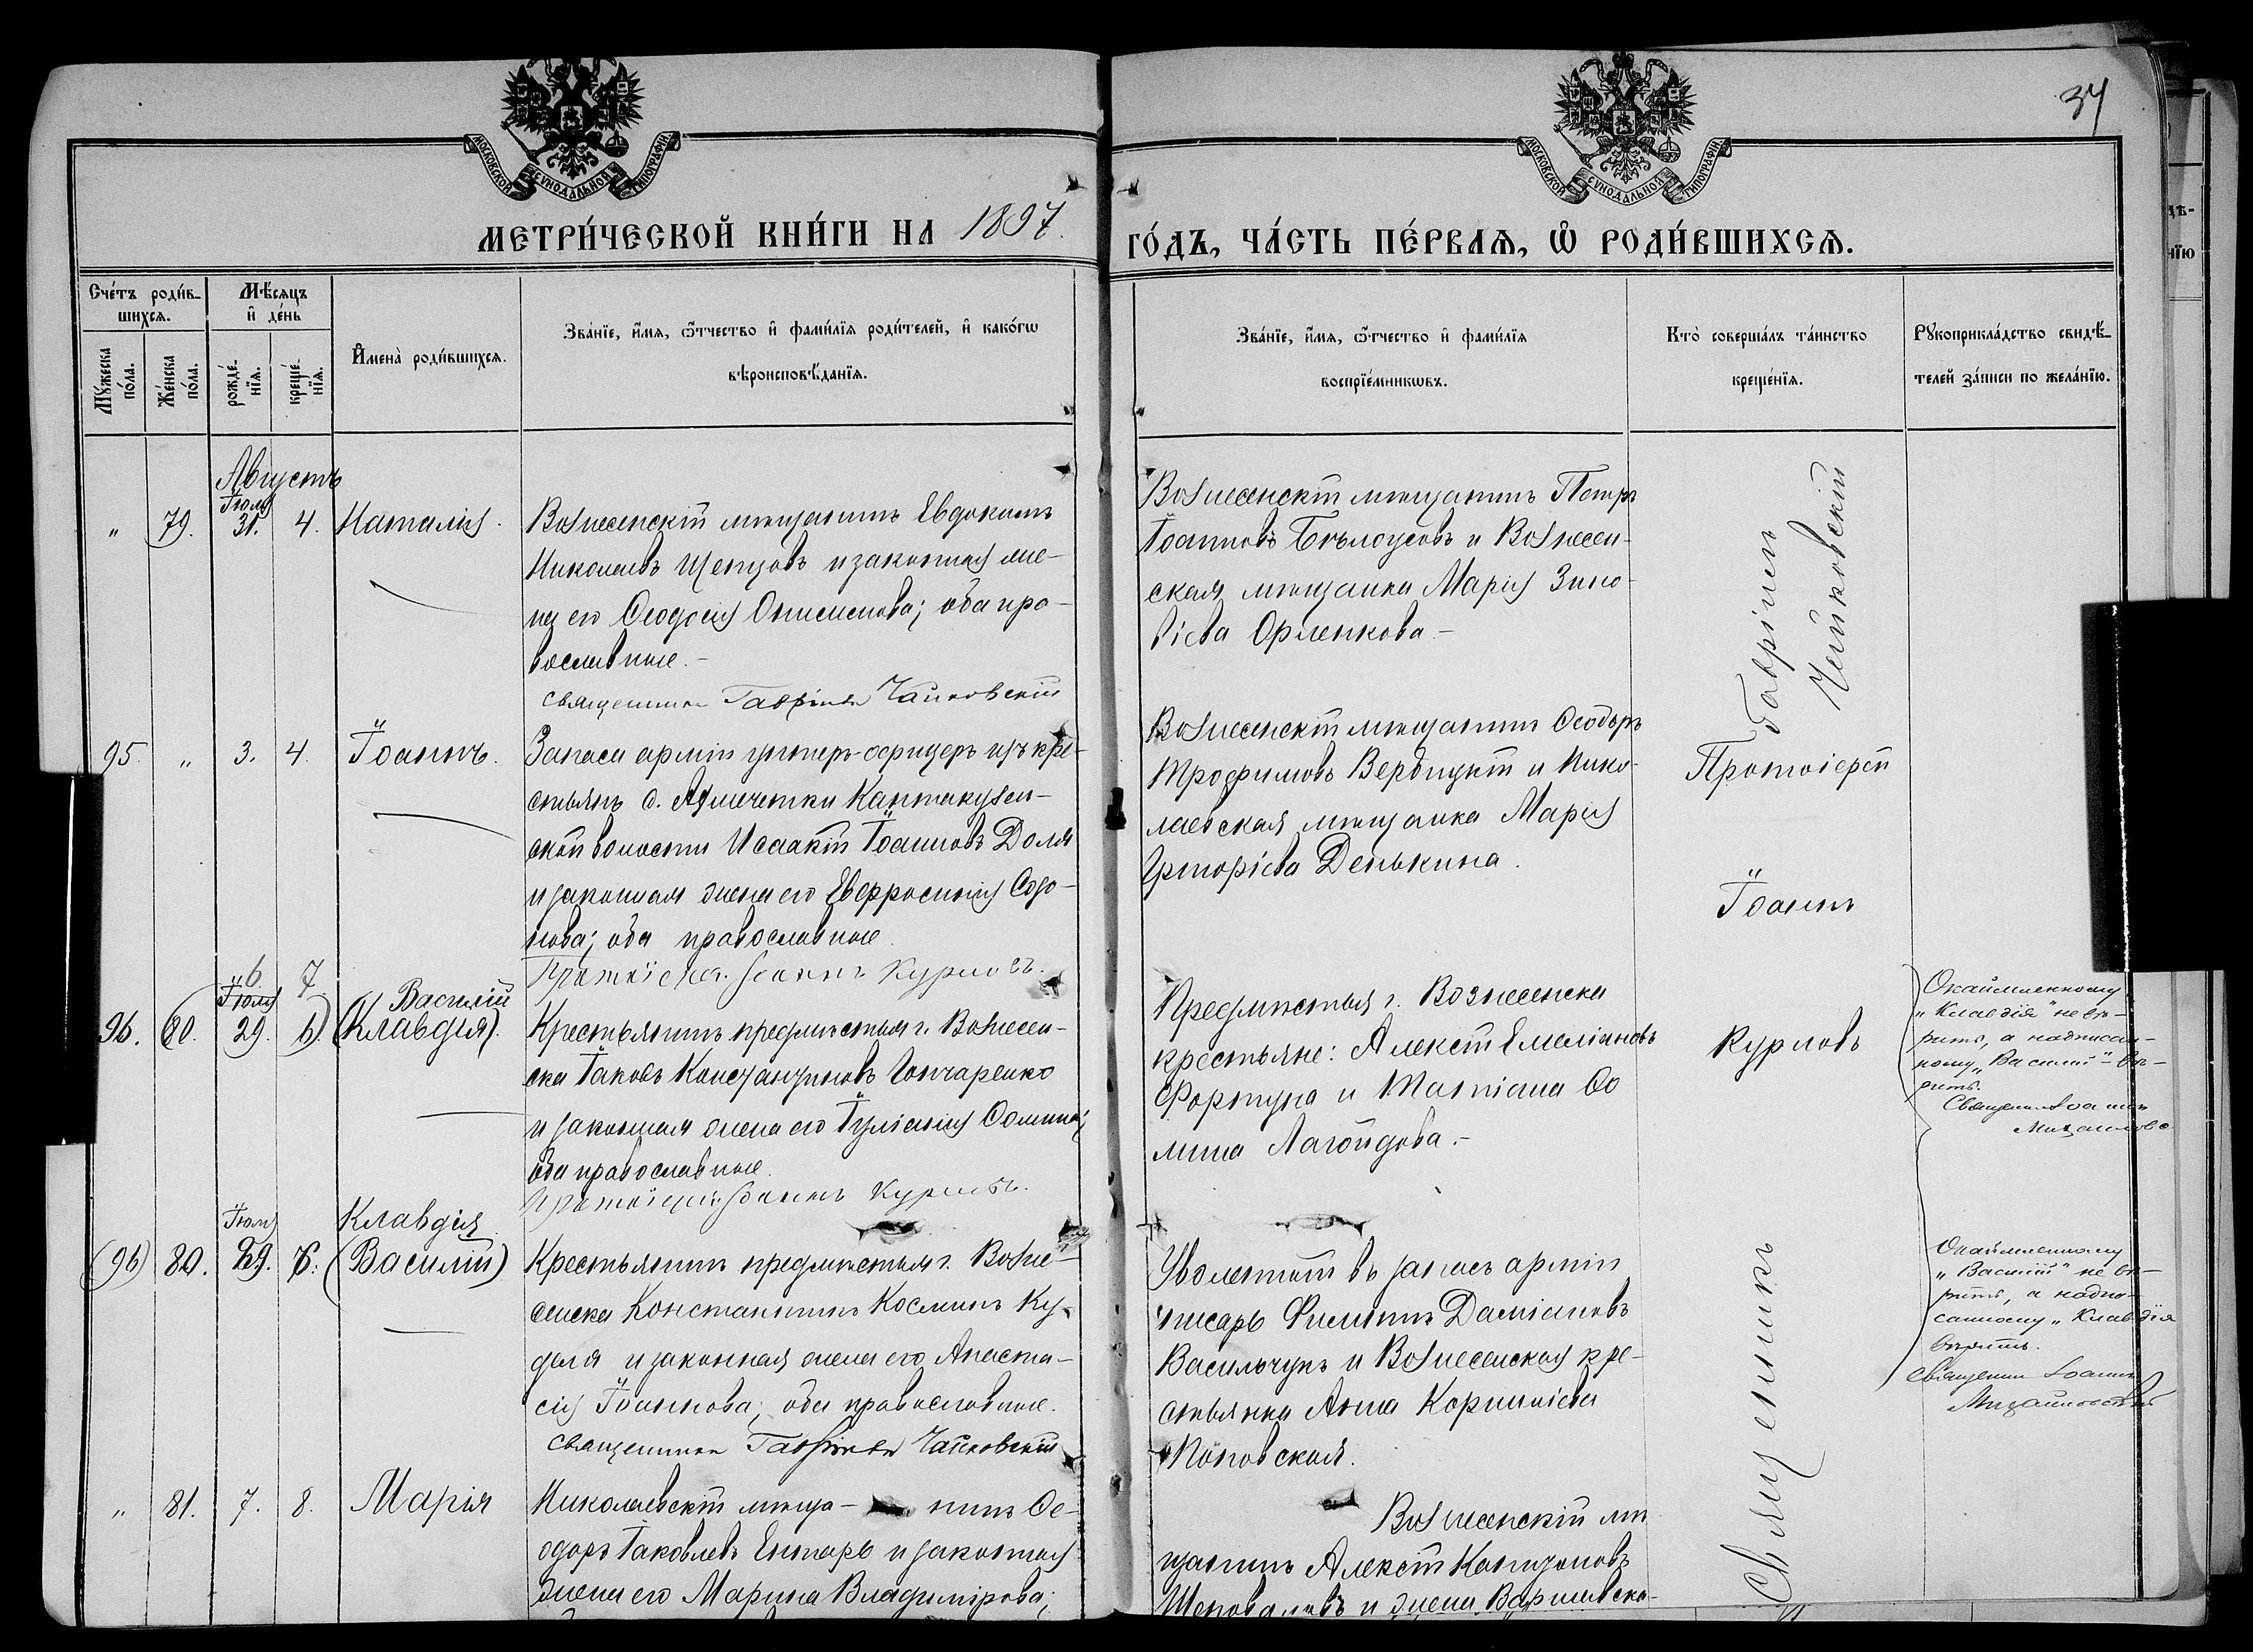 34
МОСКОВСКОЙ СѴНОДАЛЬНОЙ ТИПОГРАФІИ
МОСКОВСКОЙ СѴНОДАЛЬНОЙ ТИПОГРАФІИ
МЕТРИ́ЧЕСКОЙ КНИ́ГИ НА 1897.
ГО́ДЪ, ЧА́СТЬ ПЕ́РВАѦ, Ѡ҆ РОДИ́ВШИХСѦ.
Сче́тъ роди́в-
шихсѧ.
Мꙋ́жеска
по́ла.
Же́нска
по́ла.
Мѣ́сѧцъ
и҆ де́нь
рожде́-
нїѧ.
креще́-
нїѧ.
И҆мена̀ роди́вшихсѧ.
Зва́нїе, и҆́мѧ, ѻ҆́тчество и҆ фами́лїѧ роди́телей, и҆ како́гѡ
вѣроисповѣ́данїѧ.
Зва́нїе, и҆́мѧ, ѻ҆́тчество и҆ фами́лїѧ
воспрїе́мникѡвъ.
Кто̀ соверша́лъ та́инство
креще́нїѧ.
Рꙋкоприкла́дство свидѣ́-
телей за́писи по жела́нїю.
Августъ
Іюля
" 79. 31. 4. Наталія.
Вознесенскій мѣщанинъ Евдокимъ
Николаевъ Щепцовъ и законная же-
на его Ѳеодосія Онисимова; оба пра-
вославные.-
священникъ Гавріилъ Чайковскій
Вознесенскій мѣщанинъ Петръ
Іоанновъ Бѣлоусовъ и Вознесен-
ская мѣщанка Марія Зино-
віева Орленкова.-
95. " 3. 4. Іоаннъ.
Запаса арміи унтеръ-офицеръ изъ кре-
стьянъ с. Акмечетки Кантакузен-
ской волости Исаакій Іоанновъ Доля
и законная жена его Евфросинія Созо-
нова; оба православные.
Протоіерей Іоаннъ Курловъ.
Вознесенскій мѣщанинъ Ѳеодоръ
Трофимовъ Вербицкій и Нико-
лаевская мѣщанка Марія
Григоріева Денькина.
6 7
Іюля Василій
96. (80. 29. 6). (Клавдія).
Крестьянинъ предмѣстья г. Вознесен-
ска Іаковъ Константиновъ Гончаренко
и законная жена его Іуліанія Ѳомина;
оба православные.
Протоіерей Іоаннъ Курловъ.
Предмѣстья г. Вознесенска
крестьяне: Алексій Емеліановъ
Фортуна и Татіана Ѳо
мина Лагойдова.-
Окаймленному
„Клавдія" не вѣ-
рить, а надписан-
ному „Василій" - вѣ-
рить.
Священникъ Іоаннъ
Іюля Клавдія
(96) 80. 29. 6. (Василій)
Крестьянинъ предмѣстья г. Возне-
сенска Константинъ Косминъ Ку-
деля и законная жена его Анаста-
сія Іоаннова; оба православные.
священникъ Гавріилъ Чайковскій
Уволенный въ запасъ арміи
писарь Филиппъ Даміановъ
Васильчукъ и Вознесенская кре-
стьянка Анна Корниліева
Поповская.
Окаймленному
„Василій" не вѣ-
рить, а надпи-
санному „Клавдія
вѣрить.
Священникъ Іоаннъ
" 81. 7. 8. Марія
Николаевскій мѣща- нинъ Ѳе-
одоръ Іаковлевъ Ентарь и законная
жена его Марина Владимірова;
Вознесенскій мѣ
щанинъ Алексій Капитоновъ
Шеповаловъ и жена Варшавска-
Протоіерей
Іоаннъ
Курловъ
Священникъ
Гавріилъ
Чайковскій